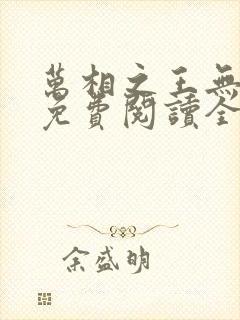 萬相之王無
免費閱讀全
余盛明